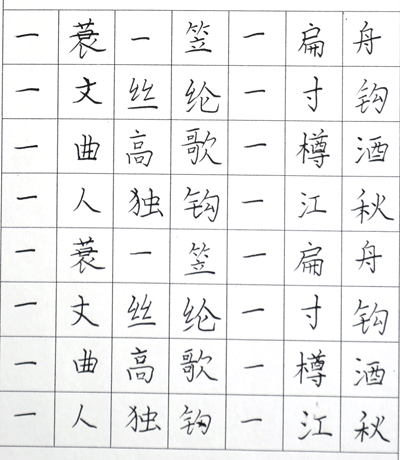 一蓑一笠一扁舟
一丈丝纶一寸钩
一曲高歌一樽酒
一人独钩一江秋
一蓑一笠一扁舟
一丈丝纶一寸钩
一曲高歌一樽酒
一人独钩一江秋